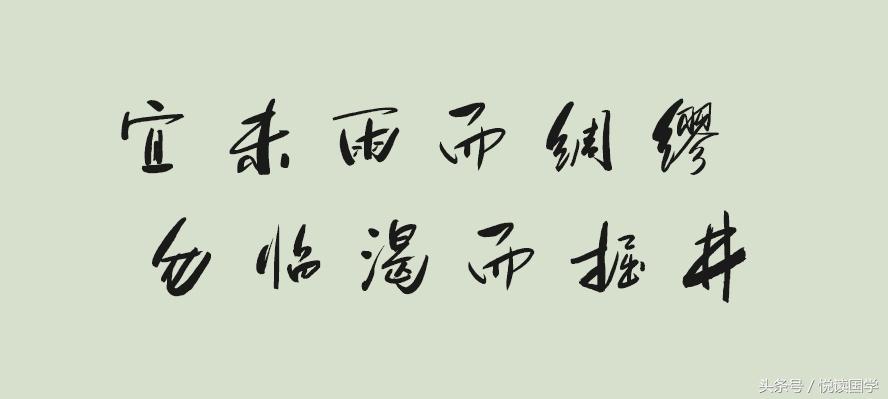 宜未雨而绸缪
勿临渴而掘井
头条号 / 悦读国学